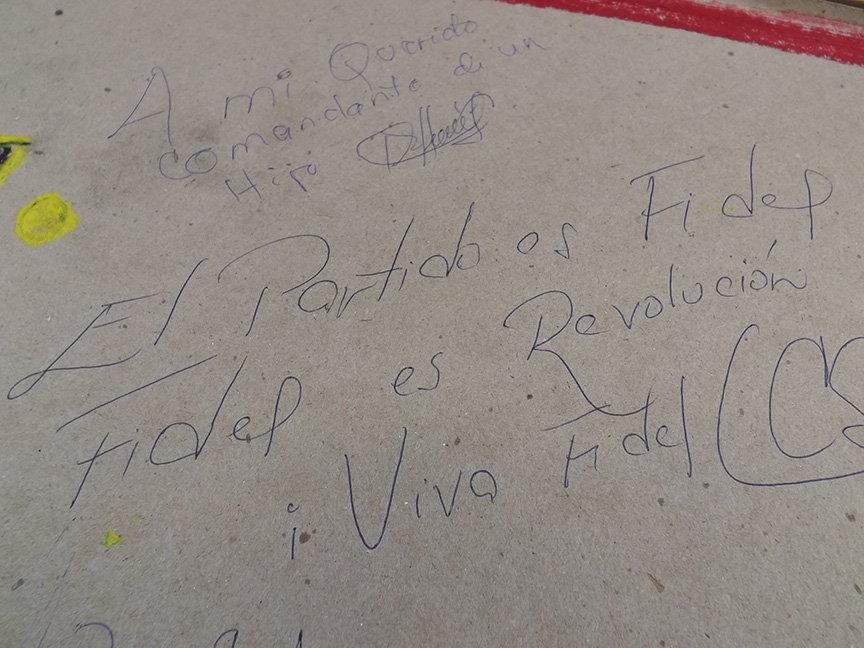 A mi Querido
comandante de un
Hijo
El Partido es Fidel
Fidel es Revolución
¡Viva Fidel